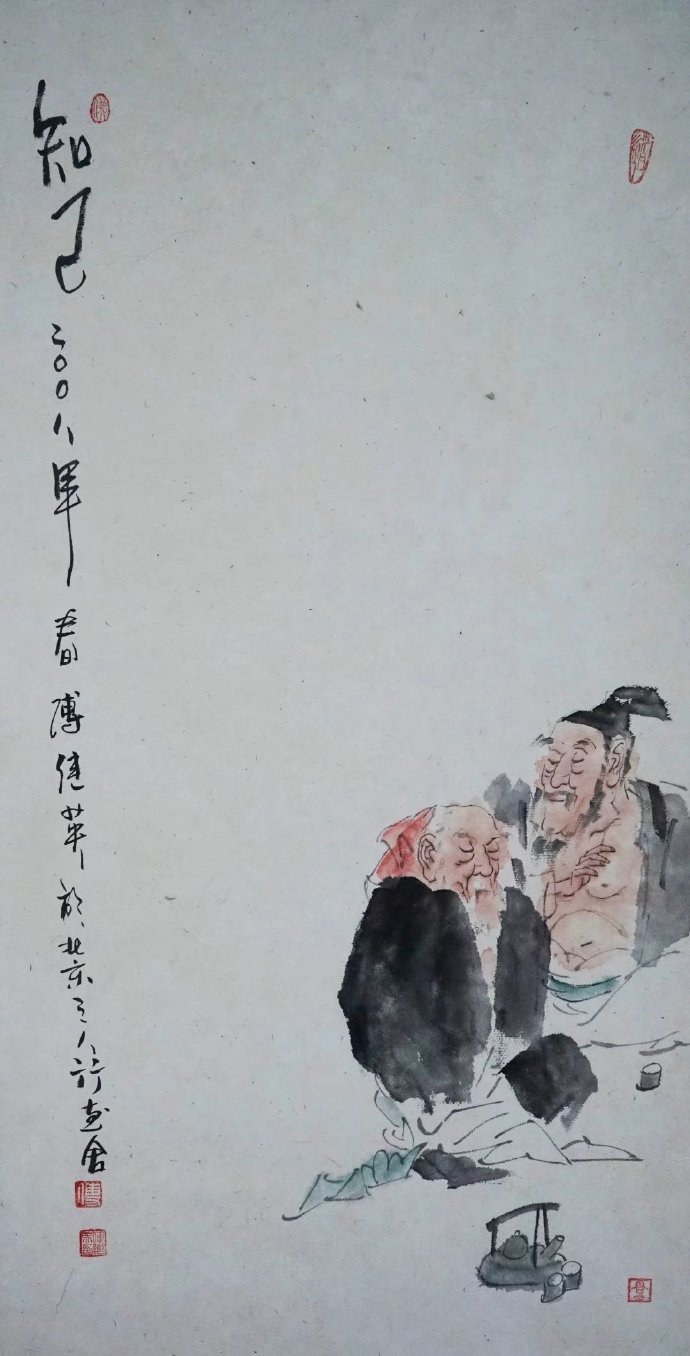 知己
二〇〇八年春傅健英於北京三人行画舍